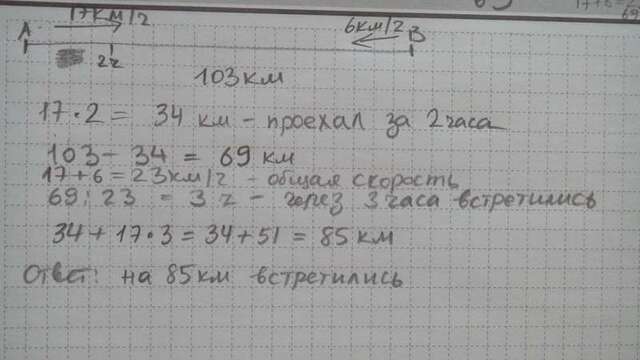 17+6=
69
17км/ч 6км/ч
А В
2ч
103км
17·2= 34 км - проехал за 2 часа
103- 34 = 69 км
17+6=23км/ч - общая скорость
69:23 = 3 ч - через 3 часа встретились
34+17·3=34+51=85 км
Ответ: на 85км встретились